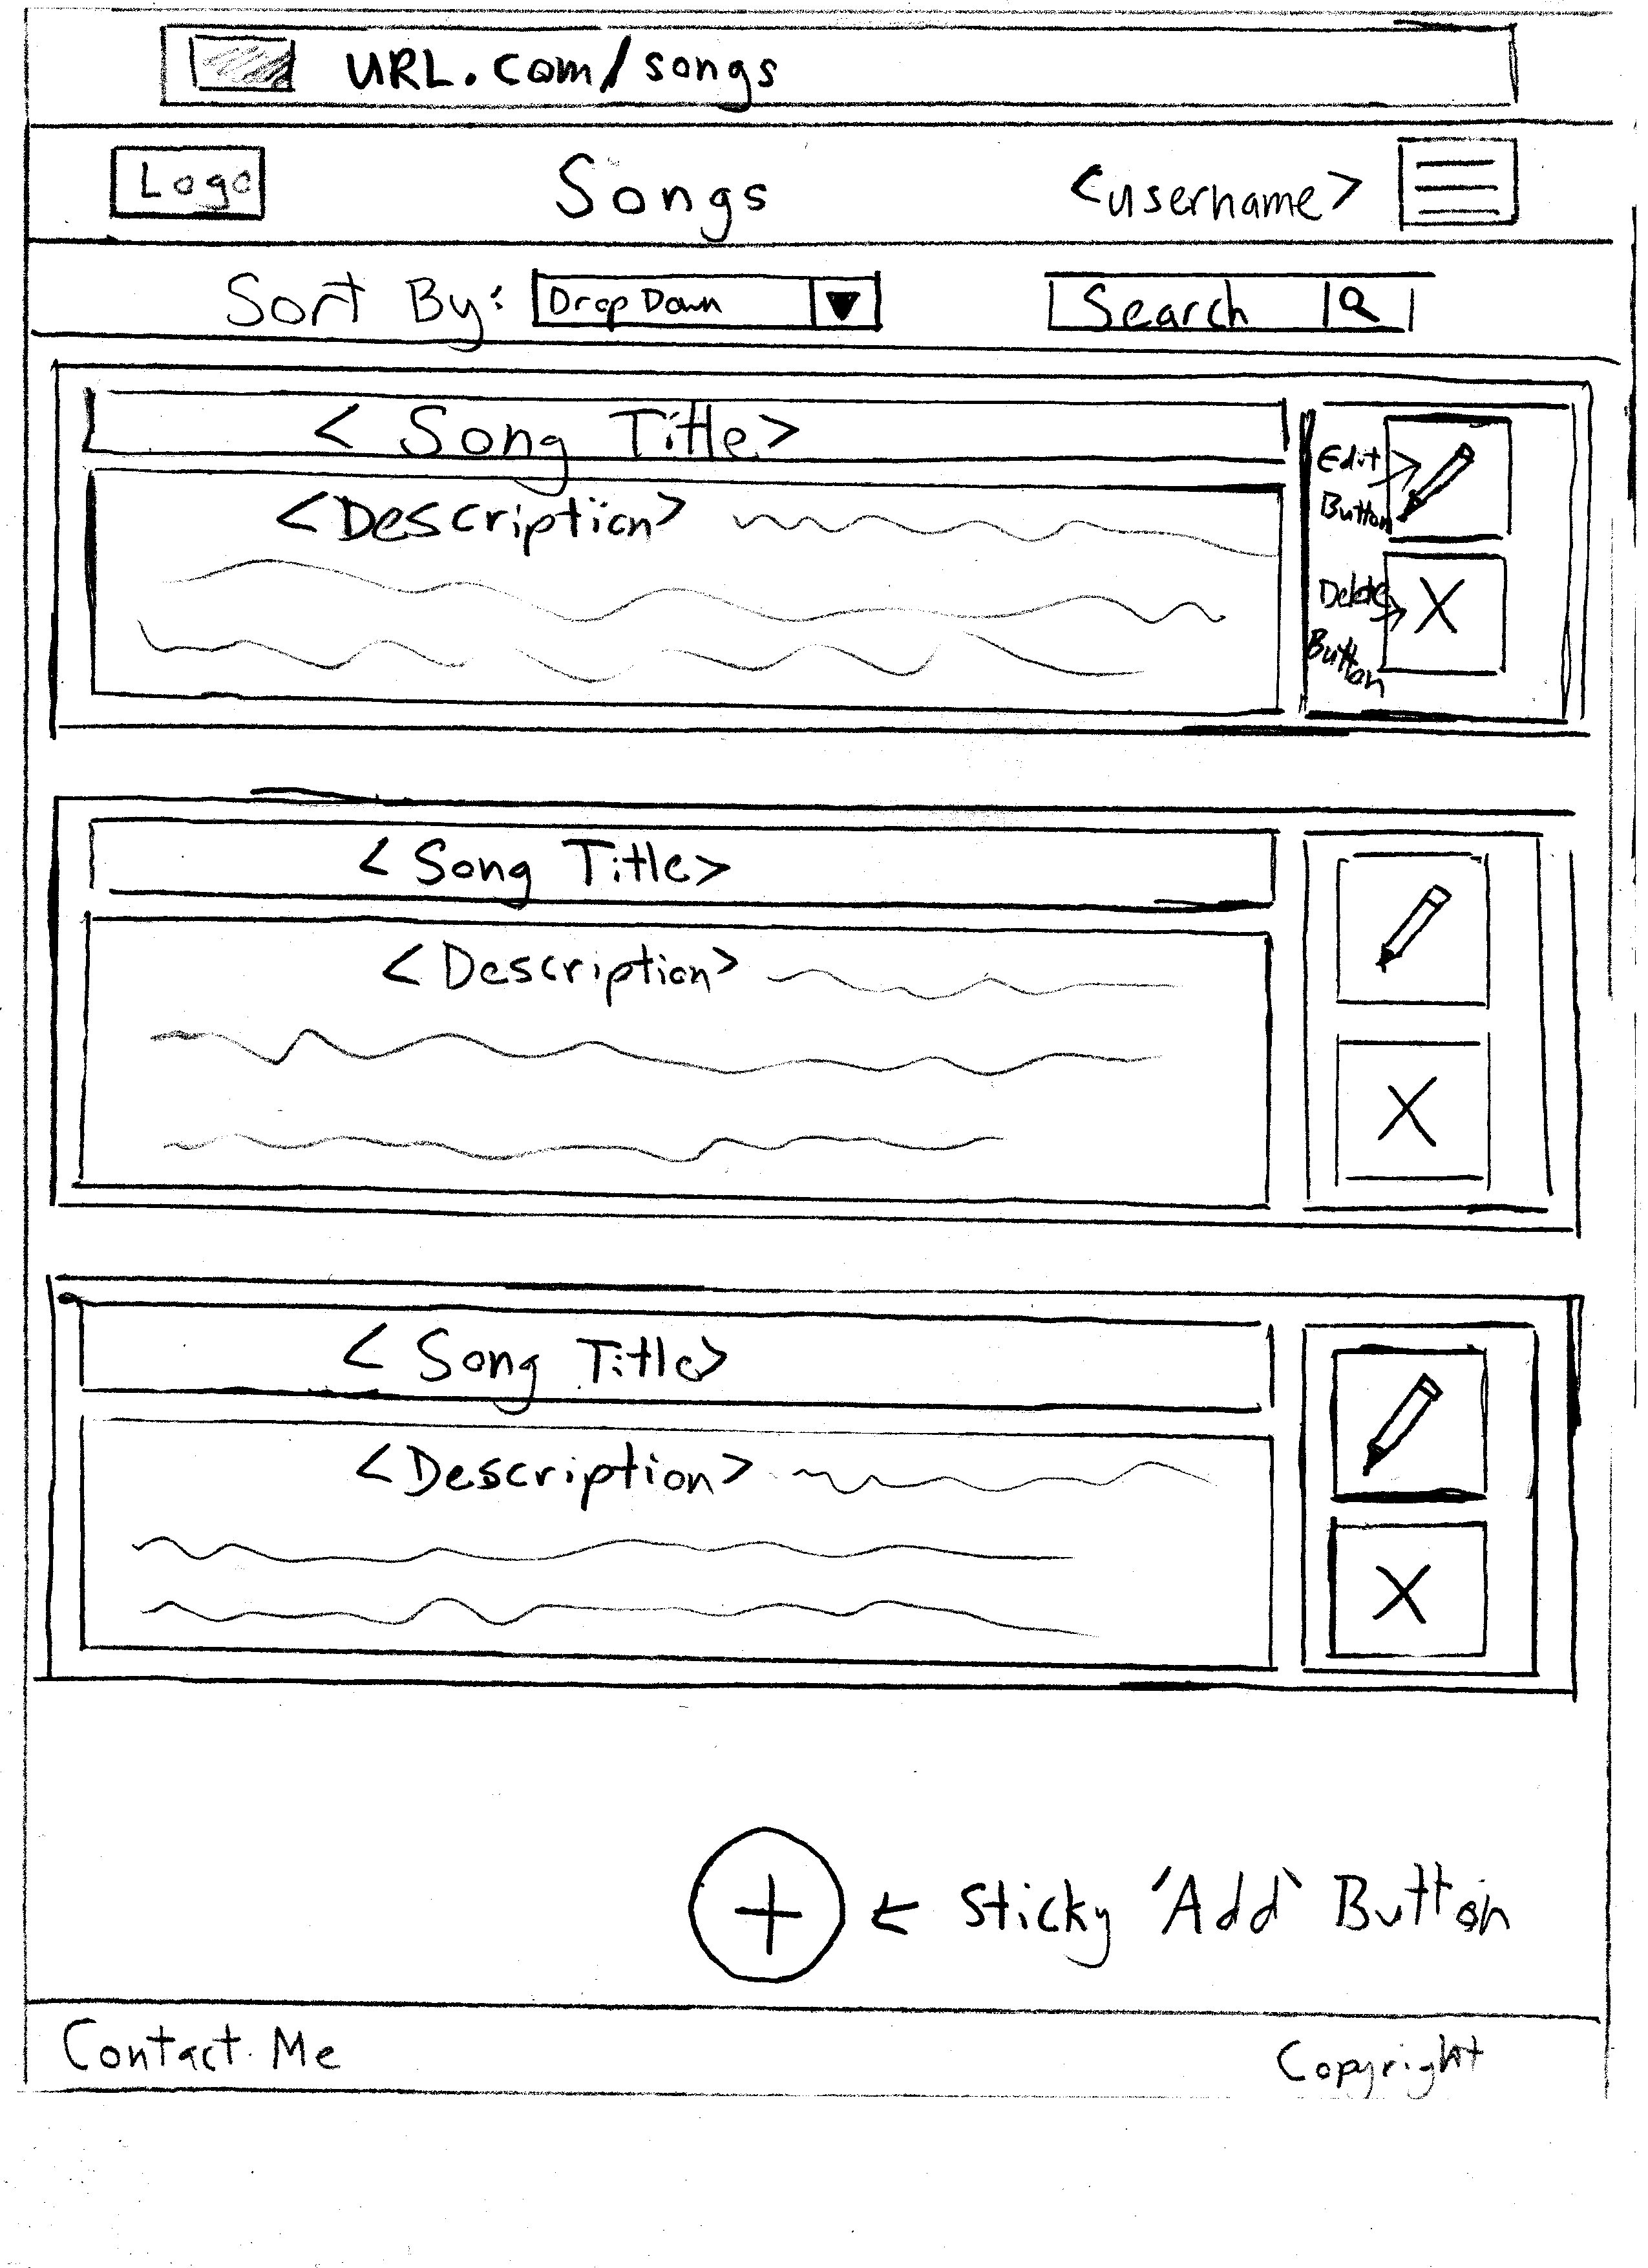 URL.com/songs
Logo
Songs
<username>
Sort By:
Drop Down
Search
< Song Title>
<Description>
Edit
Button
Delete
Button
< Song Title>
<Description>
< Song Title>
<Description>
+ ← Sticky 'Add' Button
Contact Me
Copyright